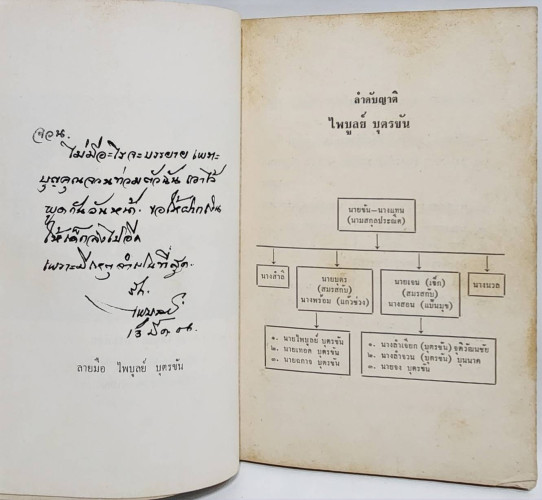 จวน.
ไม่มีอะไรจะบรรยาย เพราะ
บุญคุณจวนท่วมตัวฉัน เอาไว้
พูดกันวันหน้า. ขอให้ฝากเงิน
ให้เด็กลงไปอีก
เพราะมีเหตุจำเป็นที่สุด.
รัก.
ไพบูลย์
13 มี.ค.
ลายมือ ไพบูลย์ บุตรขัน
ลำดับญาติ
ไพบูลย์ บุตรขัน
นายขัน-นางแทน
(นามสกุลประณิต)
นางสำลี
นายบุตร
(สมรสกับ)
นางพร้อม (แก้วช่วง)
นายเจน (เซ็ก)
(สมรสกับ)
นางสอน (แป้นมุข)
นางนวล
๑. นายไพบูลย์ บุตรขัน
๒. นายเทอด บุตรขัน
๓. นาย บุตรขัน
๑. นางลำเจียก (บุตรขัน)
๒. นางลำจวน (บุตรขัน) บุนนาค
๓. นายจง บุตรขัน